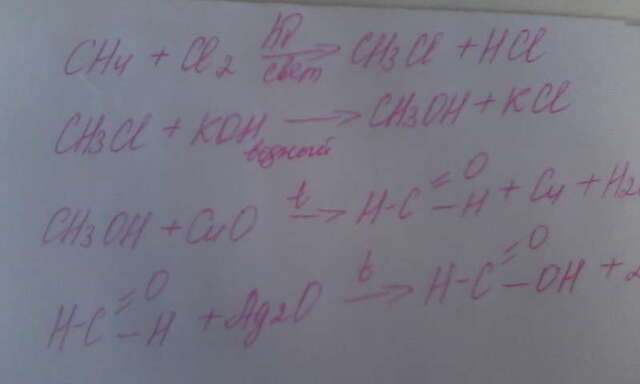 CH4 + Cl2 hν свет → CH3Cl + HCl
CH3Cl + KOH водный → CH3OH + KCl
CH3OH + CuO t → H-C =O -H + Cu + H2
H-C =O -H + Ag2O t → H-C =O -OH +